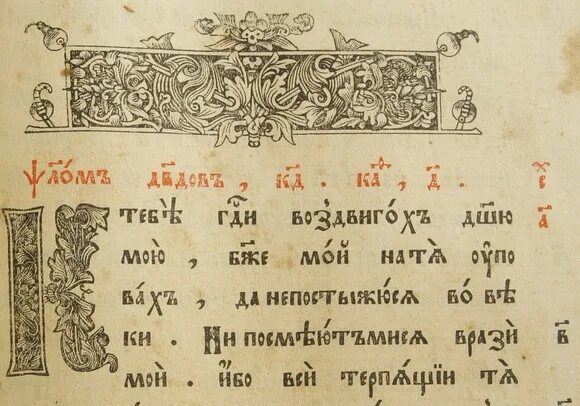 Ѱло́мъ дв҃довъ , кд҃ . каѳ , д҃ .
К тебѣ̀ гдⷭ҇и воздвиго́хъ дш҃ю
мою̀ , бж҃е мо́й натѧ̀ оупо
ва́хъ , да непостыжю́сѧ во вѣ́
ки . Ни посмѣю́тъмисѧ вразѝ
мои̑ . и҆́бо всѝ терпѧ́щїи тѧ̀
а҃
в҃